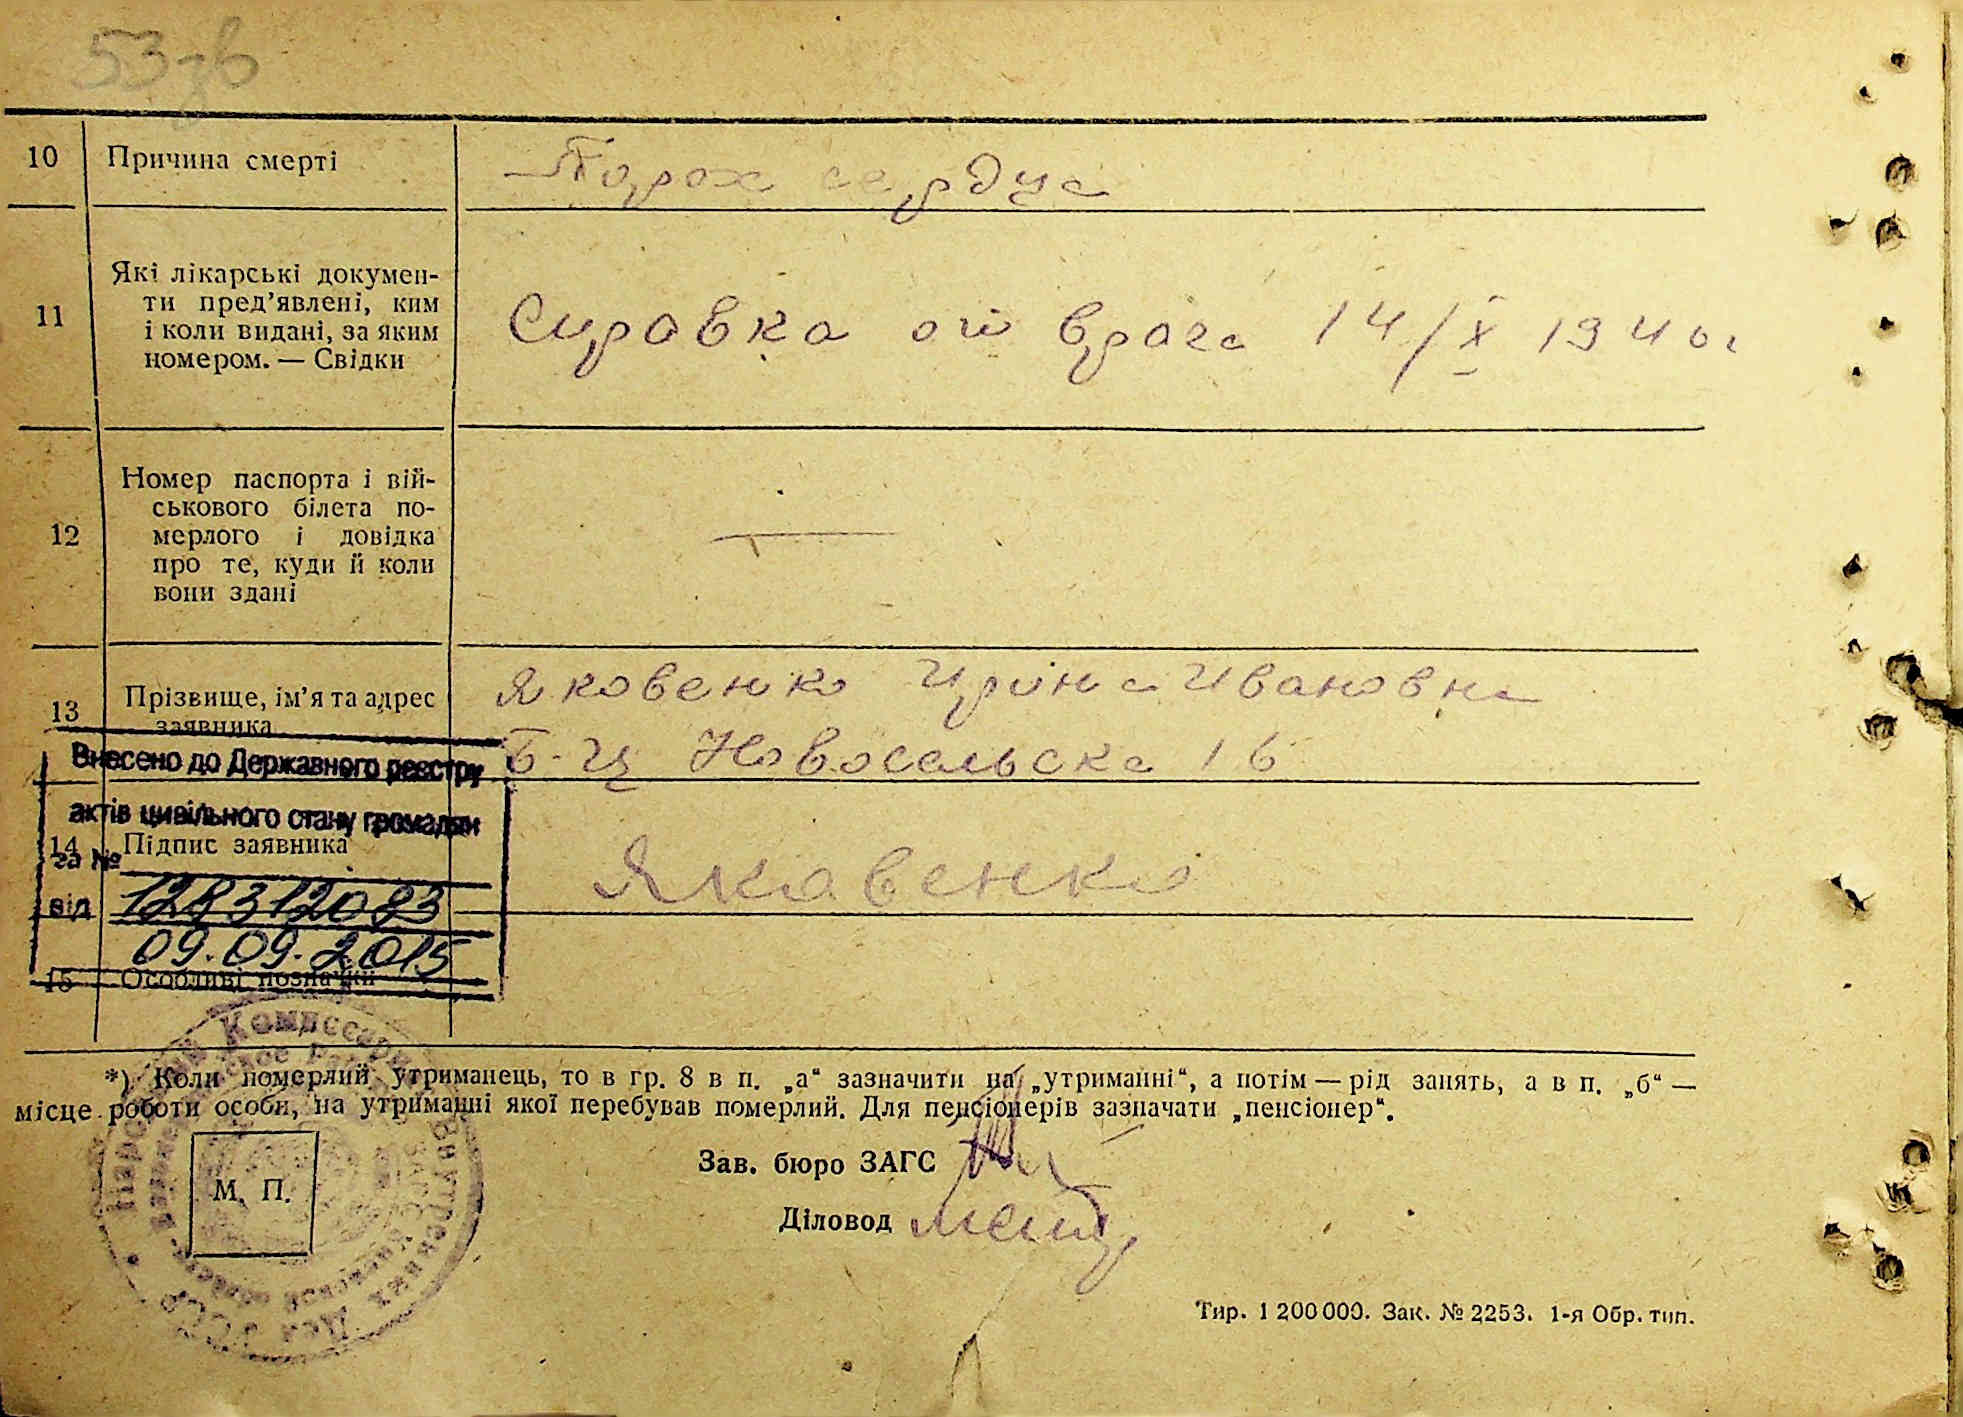 53зв
10 Причина смерті Порок сердца
11 Які лікарські докумен-
ти пред’явлені, ким
і коли видані, за яким
номером. — Свідки
Справка от врача 14/X 1940г
12 Номер паспорта і вій-
ськового білета по-
мерлого і довідка
про те, куди й коли
вони здані
—
13 Прізвище, ім’я та адрес
заявника
Яковенко Ирина Ивановна
Б-Ц Новосельска 16
Внесено до Державного реєстру
актів цивільного стану громадян
14 Підпис заявника Яковенко
за №
від 128312083
09.09.2015
15 Особливі позначки
*) Коли померлий утриманець, то в гр. 8 в п. „а“ зазначити на „утриманні“, а потім — рід занять, а в п. „б“ —
місце роботи особи, на утриманні якої перебував померлий. Для пенсіонерів зазначати „пенсіонер“.
М. П.
Зав. бюро ЗАГС
Діловод
Тир. 1 200 000. Зак. № 2253. 1-я Обр. тип.